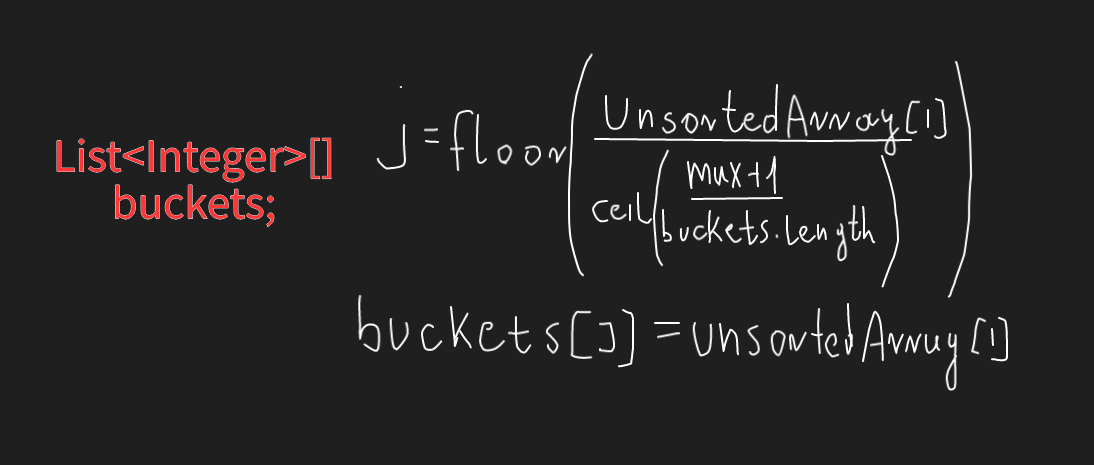 List<Integer>[]
buckets;
j=floor(
UnsortedArray[i]
ceil(
max+1
buckets.length
))
buckets[j]=unsortedArray[i]